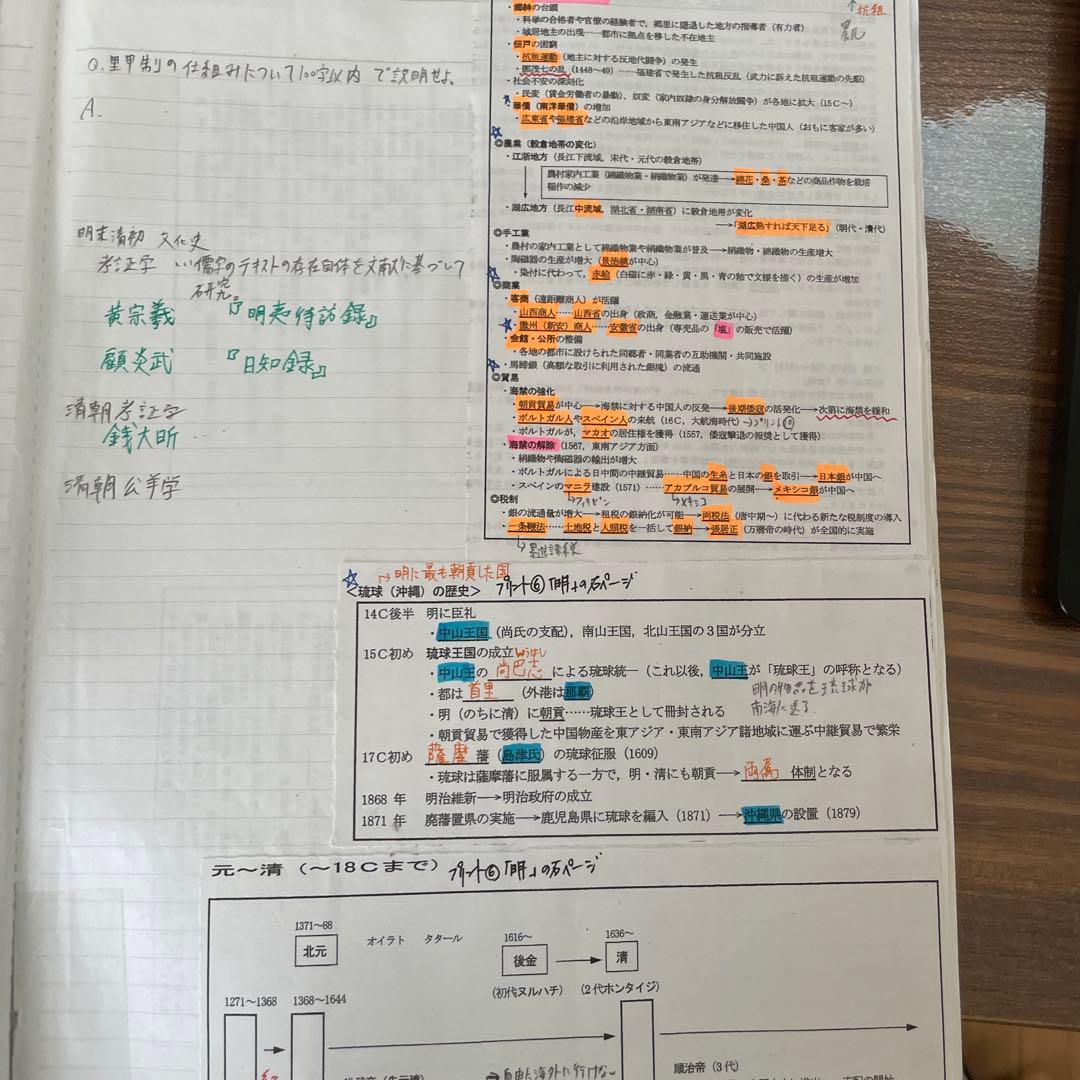 Q.里甲制の仕組みについて100字以内で説明せよ。
A.
明末清初 文化史
考証学 …儒学のテキストの存在自体を文献に基づいて
研究。
黄宗羲 『明夷待訪録』
顧炎武 『日知録』
清朝考証学
銭大昕 …
清朝公羊学
抗租
農民
・郷紳の台頭
・科挙の合格者や官僚の経験者で，郷里に隠退した地方の指導者（有力者）
・城居地主の出現……都市に拠点を移した不在地主
・佃戸の困窮
・抗租運動（地主に対する反地代闘争）の発生
・鄧茂七の乱（1448～49）……福建省で発生した抗租反乱（武力に訴えた抗租運動の先駆）
・社会不安の深刻化
・民変（賃金労働者の暴動），奴変（家内奴隷の身分解放闘争）が各地に拡大（15C～）
・華僑（南洋華僑）の増加
・広東省や福建省などの沿岸地域から東南アジアなどに移住した中国人（おもに客家が多い）
◎農業（穀倉地帯の変化）
・江浙地方（長江下流域，宋代・元代の穀倉地帯）
農村家内工業（綿織物業・絹織物業）が発達→綿花・桑・茶などの商品作物を栽培
稲作の減少
・湖広地方（長江中流域，湖北省・湖南省）に穀倉地帯が変化
→「湖広熟すれば天下足る」（明代・清代）
◎手工業
・農村の家内工業として綿織物業や絹織物業が普及→絹織物・綿織物の生産増大
・陶磁器の生産が増大（景徳鎮が中心）
・染付に代わって，赤絵（白磁に赤・緑・黄・黒・青の釉で文様を描く）の生産が増加
◎商業
・客商（遠距離商人）が活躍
・山西商人……山西省の出身（政商，金融業・運送業が中心）
・徽州（新安）商人……安徽省の出身（専売品の「塩」の販売で活躍）
・会館・公所の整備
・各地の都市に設けられた同郷者・同業者の互助機関・共同施設
・馬蹄銀（高額な取引に利用された銀塊）の流通
◎貿易
・海禁の強化
・朝貢貿易が中心→海禁に対する中国人の反発→後期倭寇の活発化→次第に海禁を緩和
・ポルトガル人やスペイン人の来航（16C，大航海時代）→プリント⑩
・ポルトガルが，マカオの居住権を獲得（1557，倭寇撃退の報奨として獲得）
・海禁の解除（1567，東南アジア方面）
・絹織物や陶磁器の輸出が増大
・ポルトガルによる日中間の中継貿易……中国の生糸と日本の銀を取引→日本銀が中国へ
・スペインのマニラ建設（1571）……アカプルコ貿易の展開→メキシコ銀が中国へ
フィリピン メキシコ
◎税制
・銀の流通量が増大→租税の銀納化が可能→両税法（唐中期～）に代わる新たな税制度の導入
・一条鞭法……土地税と人頭税を一括して銀納→張居正（万暦帝の時代）が全国的に実施
→明に最も朝貢した国
＜琉球（沖縄）の歴史＞ プリント⑥「明」の右ページ
14C後半 明に臣礼
・中山王国（尚氏の支配），南山王国，北山王国の3国が分立
15C初め 琉球王国の成立
・中山王の 尚巴志 による琉球統一（これ以後，中山王が「琉球王」の呼称となる）
・都は 首里 （外港は那覇）
明の物品を琉球が
南海に送る
・明（のちに清）に朝貢……琉球王として冊封される
・朝貢貿易で獲得した中国物産を東アジア・東南アジア諸地域に運ぶ中継貿易で繁栄
17C初め 薩摩 藩（島津氏）の琉球征服（1609）
・琉球は薩摩藩に服属する一方で，明・清にも朝貢→ 両属 体制となる
1868 年 明治維新→明治政府の成立
1871 年 廃藩置県の実施→鹿児島県に琉球を編入（1871）→沖縄県の設置（1879）
元～清（～18Cまで） プリント⑥「明」の右ページ
1371～88
北元
オイラト タタール
1616～
後金
（初代ヌルハチ）
1636～
清
（2代ホンタイジ）
1271～1368
1368～1644
→自由に海外に行けない
順治帝（3代）